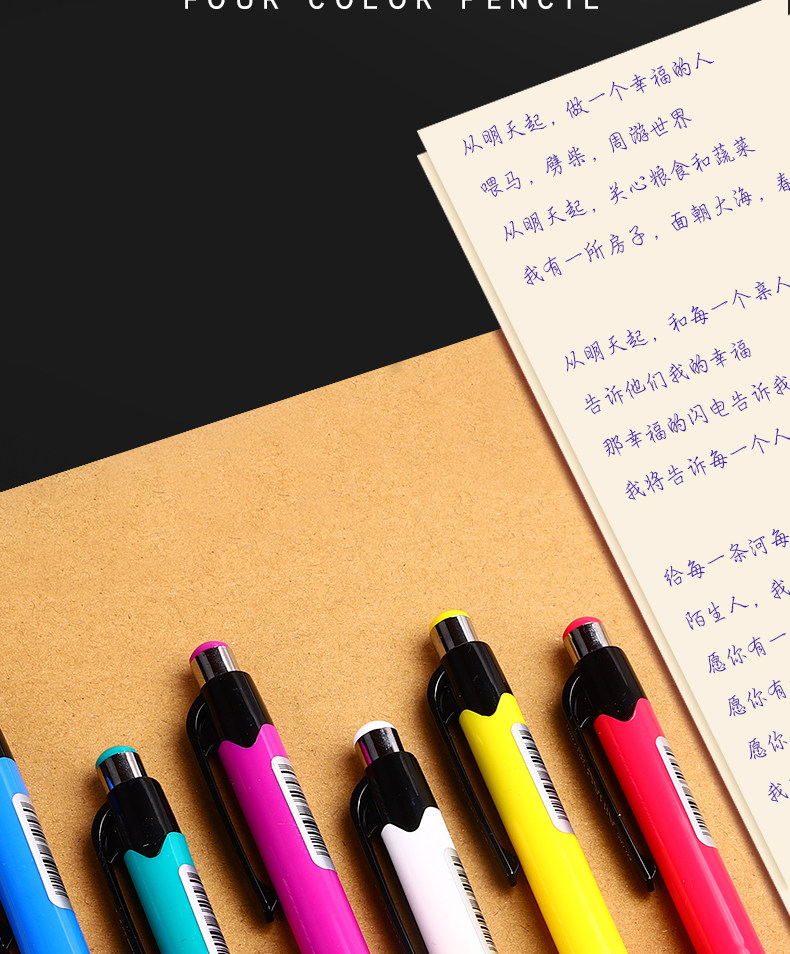 FOUR COLOR PENCIL
从明天起，做一个幸福的人
喂马，劈柴，周游世界
从明天起，关心粮食和蔬菜
我有一所房子，面朝大海，春
从明天起，和每一个亲人
告诉他们我的幸福
那幸福的闪电告诉我
我将告诉每一个人
给每一条河每
陌生人，我
愿你有一
愿你有
愿你
我